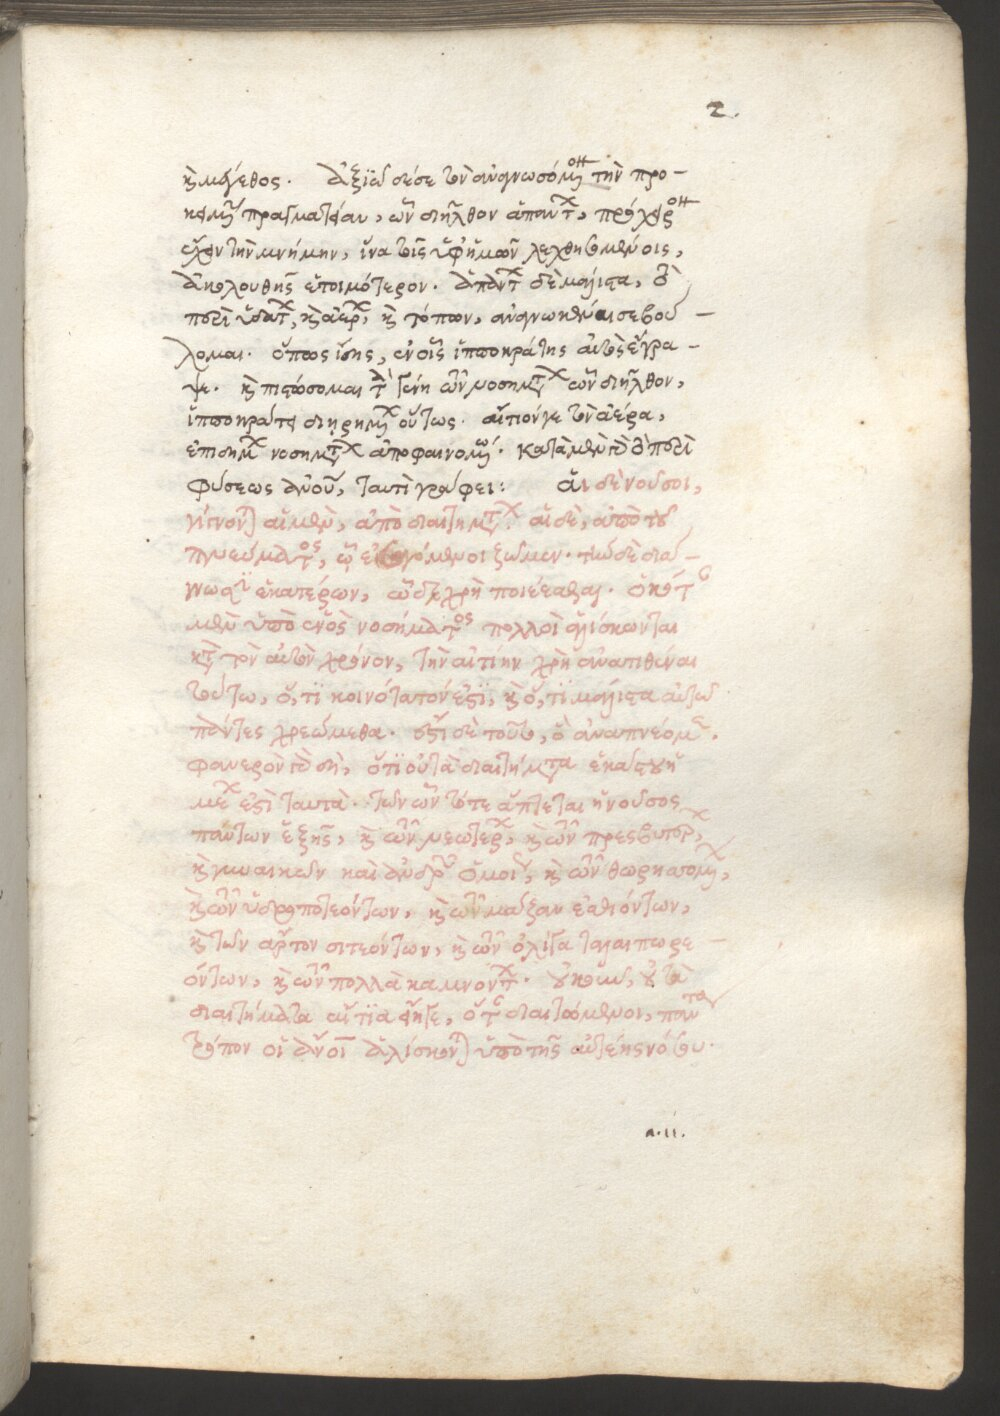 2.
κ μέγεθος. Ἀξιῶ δέ σε τὸν ἀναγνωσόμενον τὴν προ-
κειμένην πραγματείαν, ὧν διῆλθον ἁπάντων, πρόχειρον
ἔχειν τὴν μνήμην, ἵνα τοῖς ὑφ' ἡμῶν λεχθησομένοις,
ἀκολουθῇς ἑτοιμότερον. ἁπάντων δὲ μάλιστα, τὸ
περὶ ὑδάτων, κ ἀέρων, κ τόπων, ἀναγνωκέναι σε βού-
λομαι. ὅπως ἴσῃς, ἐν οἷς ἱπποκράτης αὐτὸς ἔγρα-
ψε. κ πιστώσομαι τὰ γένη τῶν νοσημάτων ὧν διῆλθον,
ἱπποκράτει διῃρημένων οὕτως. αἴτιόν γε τὸν ἀέρα,
ἐπιδήμων νοσημάτων ἀποφαινομένῳ. κατὰ μὲν τὸ περὶ
φύσεως ἀνθρώπου, ταυτὶ γράφει: αἱ δὲ νοῦσοι,
γίνονται αἱ μὲν, ἀπὸ διαιτημάτων. αἱ δὲ, ἀπὸ τοῦ
πνεύματος, ὃ ἐσαγόμενοι ζῶμεν. τὴν δὲ διά-
γνωσιν ἑκατέρων, ὧδε χρὴ ποιέεσθαι. ὁκόταν
μὲν ὑπὸ ἑνὸς νοσήματος πολλοὶ ἁλίσκωνται
κατὰ τὸν αὐτὸν χρόνον, τὴν αἰτίην χρὴ ἀνατιθέναι
τούτῳ, ὅ,τι κοινότατόν ἐστι, κ ὅ,τι μάλιστα αὐτῷ
πάντες χρεώμεθα. ἔστι δὲ τοῦτο, ὃ ἀναπνέομεν.
φανερὸν τὸ δὴ, ὅτι οὐ τὰ διαιτήματα ἑκάστου ἡ
μέων ἐστὶ ταῦτα. τῶν ὧν τότε ἅπτεται ἡ νοῦσος
πάντων ἑξῆς, κ τῶν νεωτέρων, κ τῶν πρεσβυτέρων,
κ γυναικῶν καὶ ἀνδρῶν ὁμοίως, κ τῶν θωρησσομένων,
κ τῶν ὑδροποτεόντων, κ τῶν μάζαν ἐσθιόντων,
κ τῶν ἄρτον σιτεόντων, κ τῶν ὀλίγα ταλαιπωρε-
όντων, κ τῶν πολλὰ καμνόντων. οὐκ ἂν, οὖν τὰ
διαιτήματα αἴτια εἴη γε, ὅταν διαιτώμενοι, πάντα
τρόπον οἱ ἄνθρωποι ἁλίσκωνται ὑπὸ τῆς αὐτέης νόσου.
a.ii.